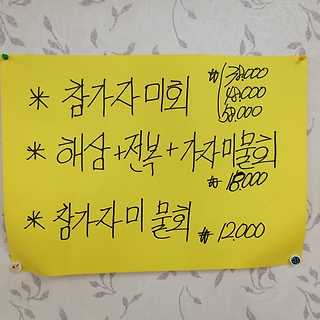 * 참가자미회 ₩ 38,000
48,000
58,000
* 해삼+전복+가자미물회
₩ 18,000
* 참가자미 물회 ₩ 12,000